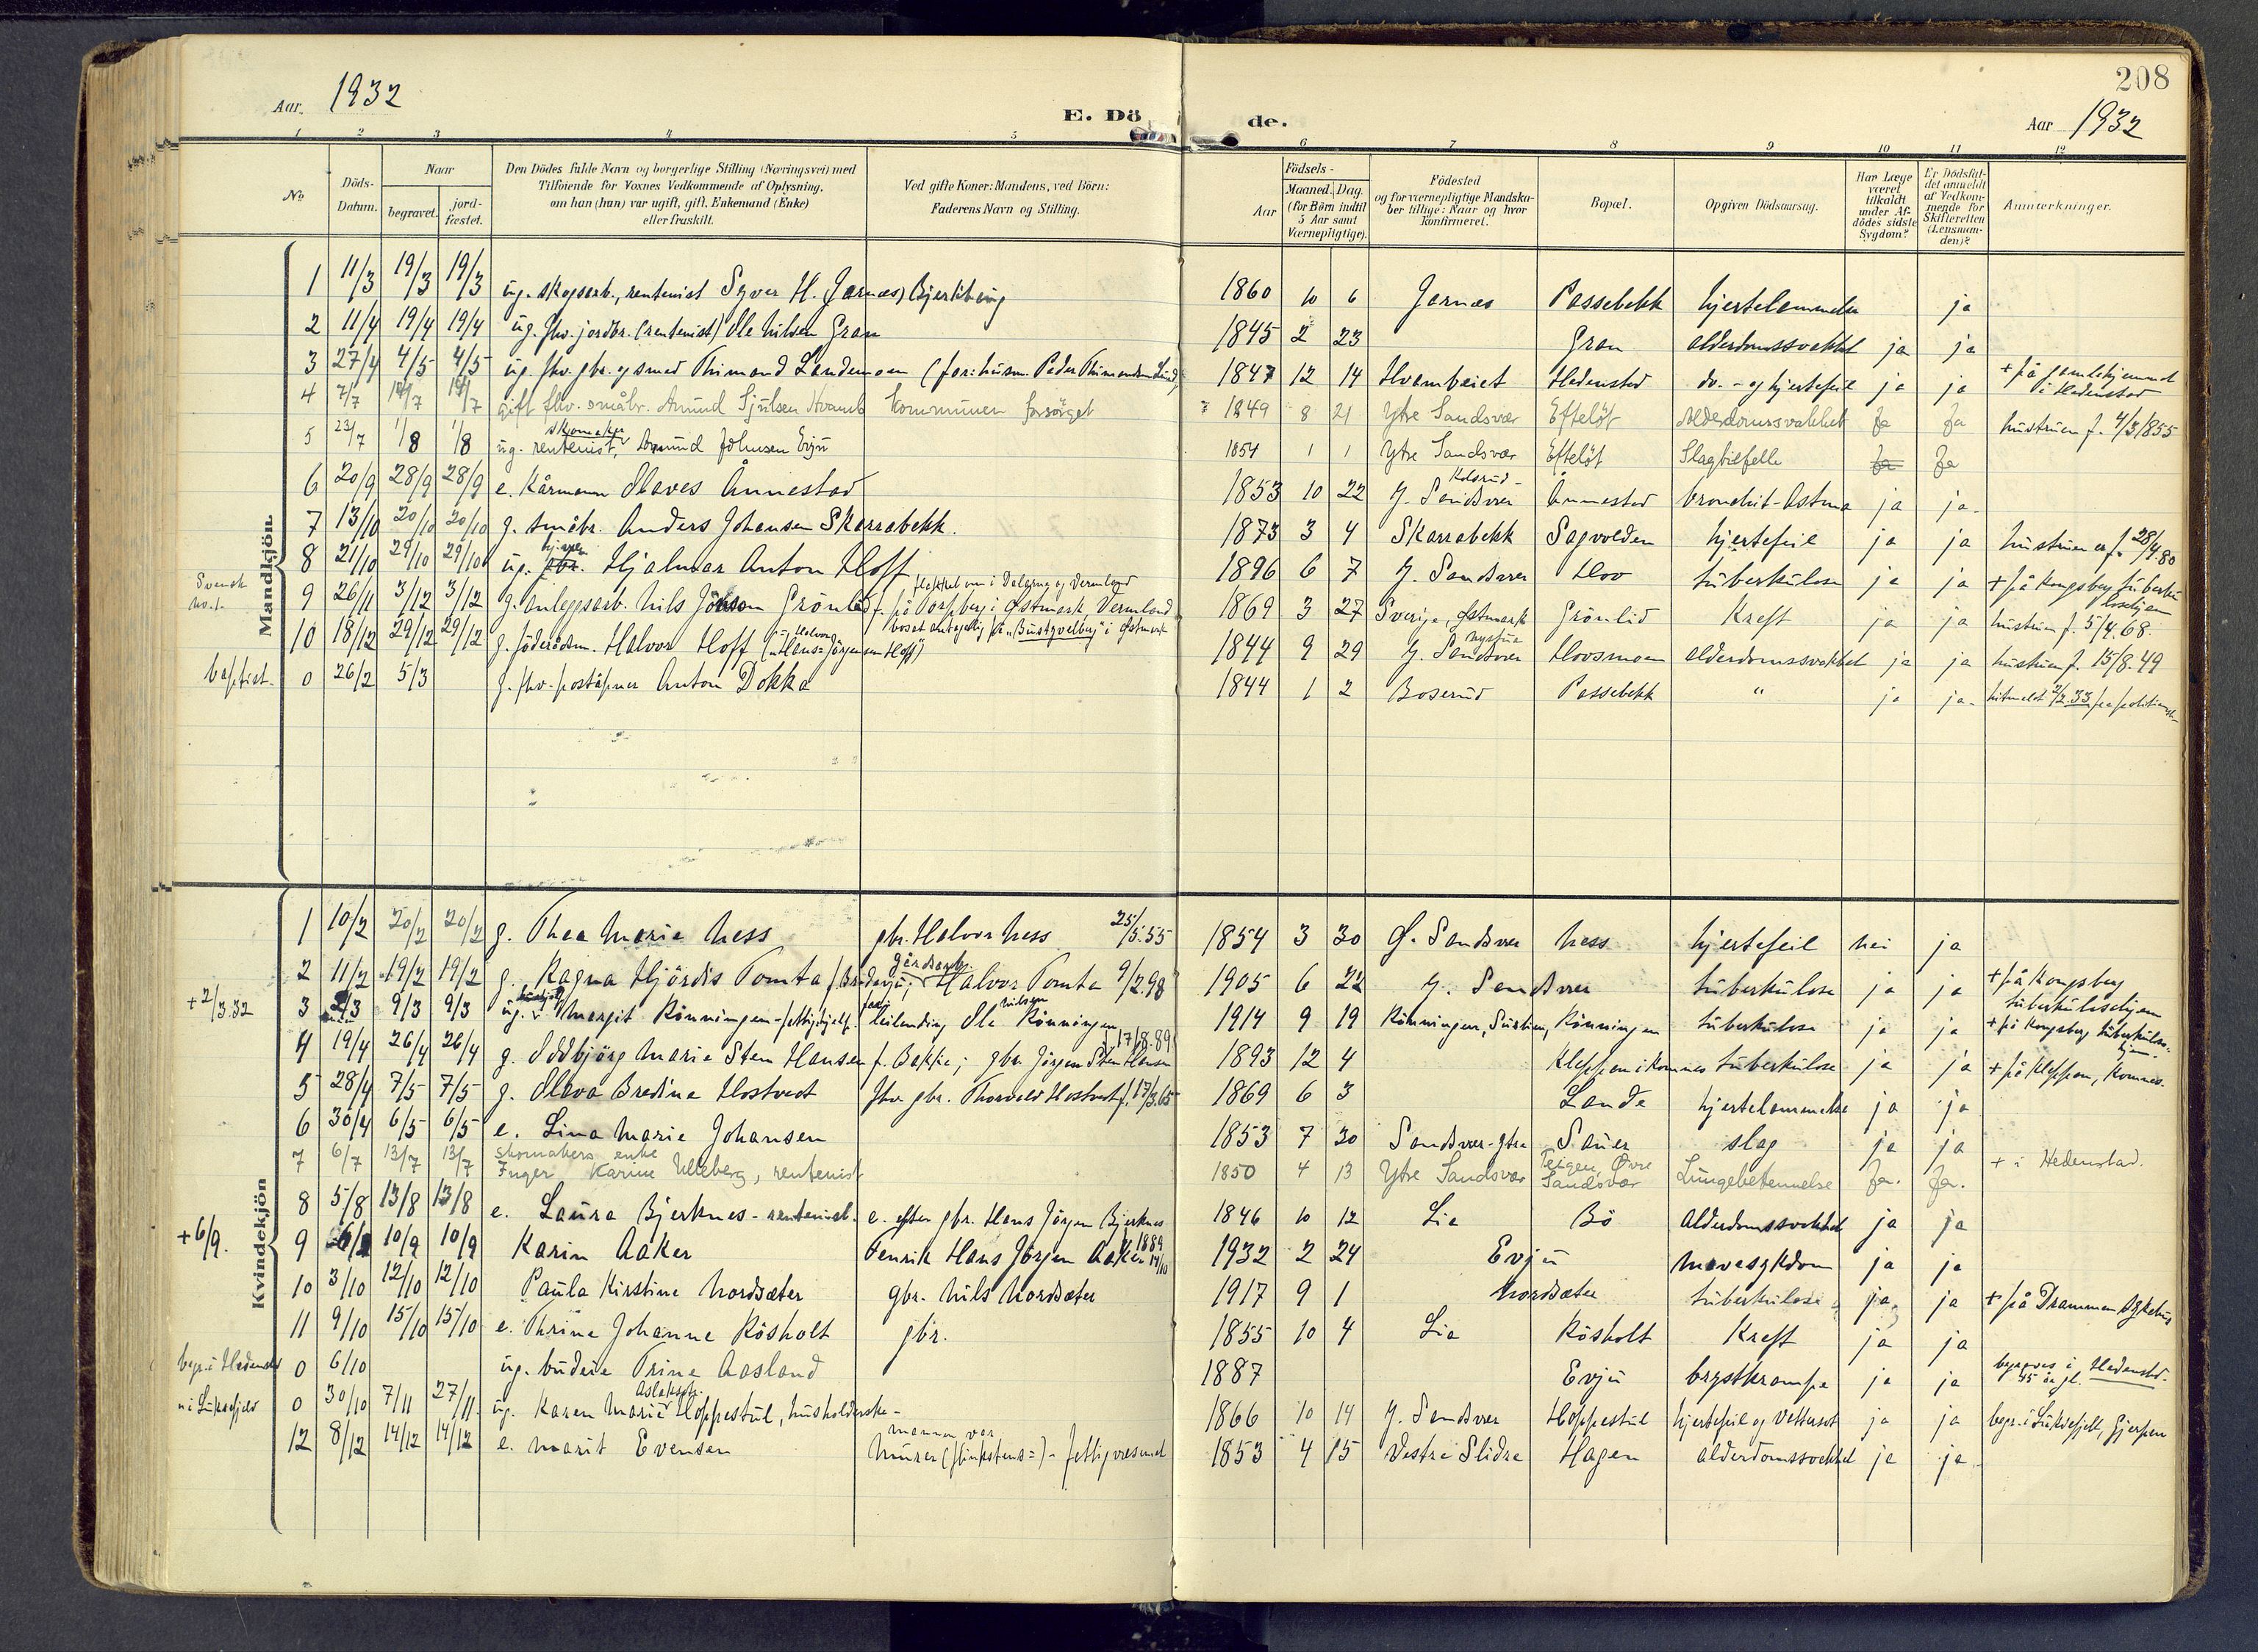 208
Aar. 1932
E. Dö de.
Aar 1932
1 2 3 4 5 6 7 8 9 10 11 12
No
Döds-Datum.
Naar
begravet.
jordfæstet.
Den Dödes fulde Navn og borgerlige Stilling (Næringsvei) med Tilföiende for Voxnes Vedkommende af Oplysning, om han (hun) var ugift, gift, Enkemand (Enke) eller fraskilt.
Ved gifte Koner: Mandens, ved Börn: Faderens Navn og Stilling.
Aar
Födsels-
Maaned. Dag. (for Börn indtil 5 Aar samt Værnepligtige).
Födested og for værnepligtige Mandskaber tillige: Naar og hvor konfirmeret.
Bopæl.
Opgiven Dödsaarsag.
Har Læge været tilkaldt under Afdödes sidste Sygdom?
Er Dödsfaldet anmeldt af Vedkommende for Skifteretten (Lensmanden)?
Anmærkninger.
Mandkjön.
1 11/3 19/3 19/3 ug. skogsarb., rentenist Syver H. Jarnæs, 1860 10 6 Jarnæs Passebekk hjertelammelse ja
2 11/4 19/4 19/4 ug. fhv. jordbr. (rentenist) Ole Nilsen Gran 1845 2 23 Gran alderdomssvakhet ja ja
3 27/4 4/5 4/5 ug. fhv. gbr. og smed Thimand Landemoen 1847 12 14 Hedenstad og hjertefeil ja ja + på gamlehjemmet i Hedenstad
4 7/7 14/7 14/7 gift fhv. småbr. Amund Sjulsen Hvamb kommunen forsörget 1849 8 21 Ytre Sandsvær Efteløt Alderdomssvakhet Ja Ja hustruen f. 4/3 1855
5 23/7 1/8 1/8 ug. rentenist, skomaker Amund Johnsen Evju 1854 1 1 Ytre Sandsvær Efteløt Slagtilfelle Ja Ja
6 20/9 28/9 28/9 e. Kårmann Olaves Ånnestad 1853 10 22 Y. Sandsvær Ånnestad bronchit-Astma ja ja
7 13/10 20/10 20/10 g. småbr. Anders Johansen Skarrabekk. 1873 3 4 Skarrabekk Sagvolden hjertefeil ja ja hustruen er f. 28/4 80
8 21/10 29/10 29/10 ug. Hjalmar Anton Hoff 1896 6 7 Y. Sandsvær Hov tuberkulose ja ja + på Kongsberg tuberkulosehjem
Svensk
9 26/11 3/12 3/12 g. anleggsarb. Nils Grönlid f. på i Østmark Vermland 1869 3 27 Sverige, Østmark Grönlid Kreft ja ja hustruen f. 5/4. 68.
10 18/12 29/12 29/12 g. föderådsm. Halvor Hoff 1844 9 29 Y. Sandsvær Hovsmoen alderdomssvakhet ja ja hustruen f. 15/8-49
baptist. 0 26/2 5/3 g. fhv. poståpner Anton Dokka 1844 1 2 Boserud Passebekk " ja ja
Kvindekjön
1 10/2 20/2 20/2 g. Thea Marie Ness gbr. Halvor Ness 25/5.55 1854 3 30 Ø. Sandsvær Ness hjertefeil nei ja
2 11/2 19/2 19/2 g. Ragna Hjördis Tomta Halvor Tomta 9/2.98 1905 6 22 Y. Sandsvær tuberkulose ja ja + på Kongsberg tuberkulosehjem
+2/3.32 3 2/3 9/3 9/3 ug. Margit Rönningen leilending Ole Nilsen Rönningen 1914 9 19 Rönningen, Rönningen tuberkulose ja ja + på Kongsberg tuberkulosehjem.
4 19/4 26/4 26/4 g. Oddbjörg Marie Sten Hansen f. Bakke; gbr. Jörgen Sten Hansen f. 17/8.89 1893 12 4 Kleppen i Komnes tuberkulose ja ja + på Kleppen, Komnes.
5 28/4 7/5 7/5 g. Olava Bredine Hostvedt fhv. gbr. Thorvald Hostvedt f. 17/3.65 1869 6 3 Lande hjertelammelse ja ja
6 30/4 6/5 6/5 e. Lina Marie Johansen 1853 7 30 Sandsvær-ytre Sauer slag ja ja
7 6/7 13/7 13/7 skomakers enke Inger Karine Ulleberg, rentenist 1850 4 13 Ytre Sandsvær Teigen, Øvre Sandsvær Lungebetennelse Ja. Ja. + i Hedenstad.
8 5/8 13/8 13/8 e. Laura Bjerknes - rentenist. e. efter gbr. Hans Jörgen Bjerknes 1846 10 12 Lia Bö Alderdomssvakhet ja ja
+6/9. 9 6/9 10/9 10/9 Karin Aaker Fenrik Hans Jörgen Aaker 1889 14/10 1932 2 24 Evju mavesykdom ja ja
10 3/10 12/10 12/10 Paula Kirstine Nordsæter gbr. Nils Nordsæter 1917 9 1 Nordsæter tuberkulose ja ja + på Drammen sykehus
11 9/10 15/10 15/10 e. Thrine Johanne Rösholt gbr. 1855 10 4 Lia Rösholt Kreft ja ja
begr. i Hedenstad 0 6/10 ug. budeie Trine Aasland 1887 Evju brystkrampe ja ja begraves i Hedenstad. 45 år gl.
0 30/10 7/11 27/11 ug. Karen Marie Aslaksdtr. Hoppestul, husholderske - 1866 10 14 Y. Sandsvær Hoppestul hjertefeil og Vattersot ja ja begr. i Luksefjell, Gjerpen
12 8/12 14/12 14/12 e. Marit Evensen mannen var Murer 1853 4 15 Vestre Slidre Hagen alderdomssvakhet ja ja